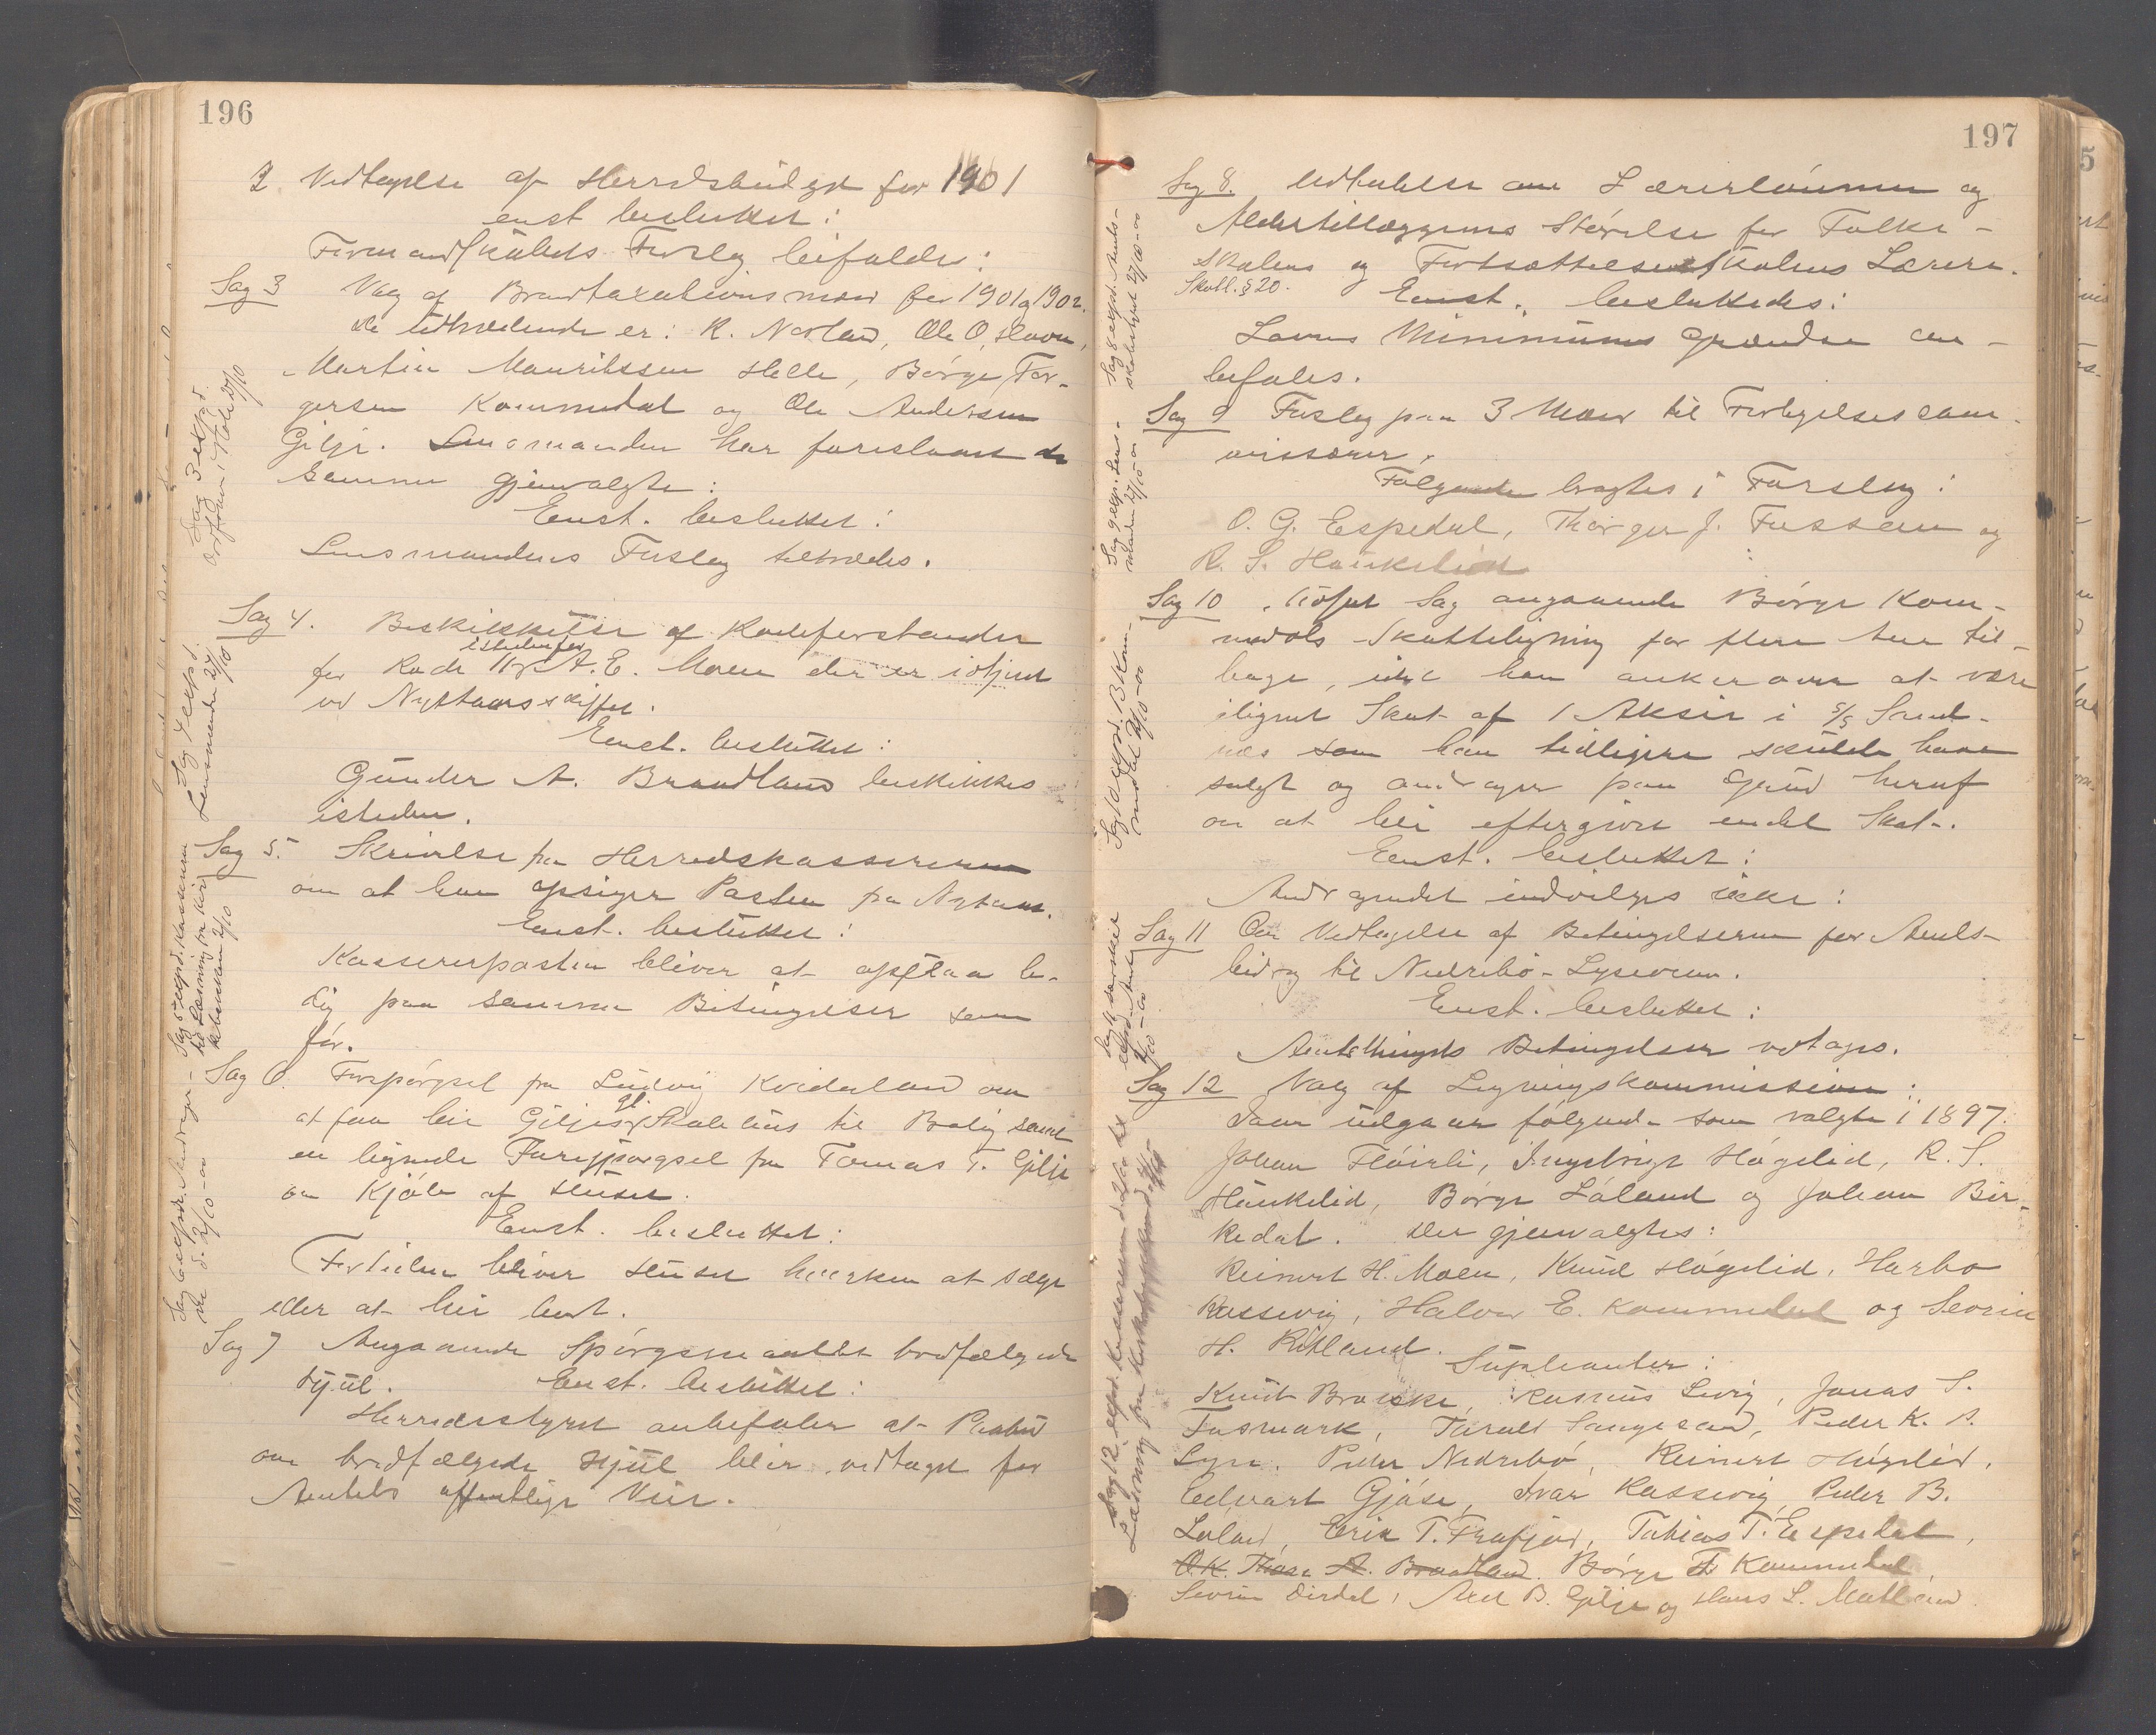 196
2 Vedtagelse af Herredsbudget for 1901
enst besluttet:
Formandskabets Forslag bifaldes:
Sag 3 Valg af Brandtaxationsmænd for 1901 og 1902.
De udtrædende er: K. Norland, Ole O. Haven,
Martin Mauritssen Helle, Børge Tor-
gersen Kommedal og Ole Andersen
Gilje. Lensmanden har foreslaaet de
samme gjenvalgte:
Eenst. besluttet:
Lensmandens Forslag tiltrædes.
Sag 4. Beskikkelse af Rodeforstander
for Rode 11 istedenfor A. E. Moen der er idømt
ved Nyttaarsskiftet.
Eenst. besluttet:
Gunder A. Brandland beskikkes
isteden.
Sag 5. Skrivelse fra Herredskassereren
om at han opsiger Posten fra Nytaar.
Eenst. besluttet:
Kassererposten bliver at opslaa le-
dig paa samme Betingelser som
før.
Sag 6. Forspørgsel fra Ludvig Kvideland om
at faa leie Giljes gl. Skolehus til Bolig samt
en lignende Forespørgsel fra Tomas T. Gilje
om Kjøb af Huset.
Eenst. besluttet:
Fortiden bliver Huset hverken at sælge
eller at leie bort.
Sag 7 Angaaende Spørgsmaalet bredfælgede
Hjul. Eenst. besluttet:
Herredsstyret anbefaler at Paabud
om bredfælgede Hjul blir vedtaget for
Amtets offentlige Veie.
Sag 3 expd.
Ordføren i Møde 27/10
Sag 4 expd.
Lensmanden 27/10
Sag 5 expd. Kassereren
til Læsning fra Kir-
kebakken 2/10
Sag 6 expd. Andrager-
ne d. 2/10-00
197
Sag 8. Udtalelse om Lærerlønnen og
Alderstillæggenes Størrelse for Folke-
skolens og Fortsættelsesskolens Lærere.
Skoll. § 20. Eenst. besluttedes:
Lovens Minimums Grændse an-
befales.
Sag 9 Forslag paa 3 Mænd til Forligelseskom-
missærer.
Følgende bragtes i Forslag:
O. G. Espedal, Thorger J. Fossan og
R. S. Haukelid
Sag 10 Udsat Sag angaaende Børge Kom-
medals Skatteligning for flere Aar til-
bage, idet han anker over at være
ilignet Skat af 1 Aksie i S/S Sand-
næs som han tidligere skulde have
solgt og andrager paa Grund heraf
om at bli eftergivet endel Skat.
Eenst. besluttet:
Andragendet indvilges ikke:
Sag 11 Om Vedtagelse af Betingelserne for Amts-
bidrag til Nedrebø-Lyseveien.
Eenst. besluttet:
Amtsthingets Betingelser vedtages.
Sag 12 Valg af Ligningskommission:
Som udgaar følgende som valgte i 1897.
Johan Fløirli, Ingebrigt Høgelid, R. S.
Haukelid, Børge Løland og Johan Bir-
kedal. Der gjenvalgtes:
Reinert H. Moen, Knud Høgelid, Harbo
Røssevig, Halvor E. Kommedal og Severin
H. Ritland. Supleanter:
Knut Brekke, Rasmus Levig, Jonas S.
Fosmark, Tarald Haugesand, Peder K. S.
Lyse. Peder Nedrebø, Reinert Høgelid,
Edvart Gjøse, Ivar Røssevig, Peder B.
Løland, Erik T. Frafjord, Tobias T. Espedal,
O. K. A. Brandland. Børge T. Kommedal,
Severin Dirdal, Axel B. Gilje og Hans L. Motland.
Sag 8 expd. Amts-
skolestyret 27/10-00
Sag 9 exp. Lens-
manden 27/10-00
Sag 10 expd. B Kom-
medal 27/10-00
expd. Amtet
2/10-00
Sag 12. expd. Kassereren d. 2/10 til
Læsning fra Kirkebakken